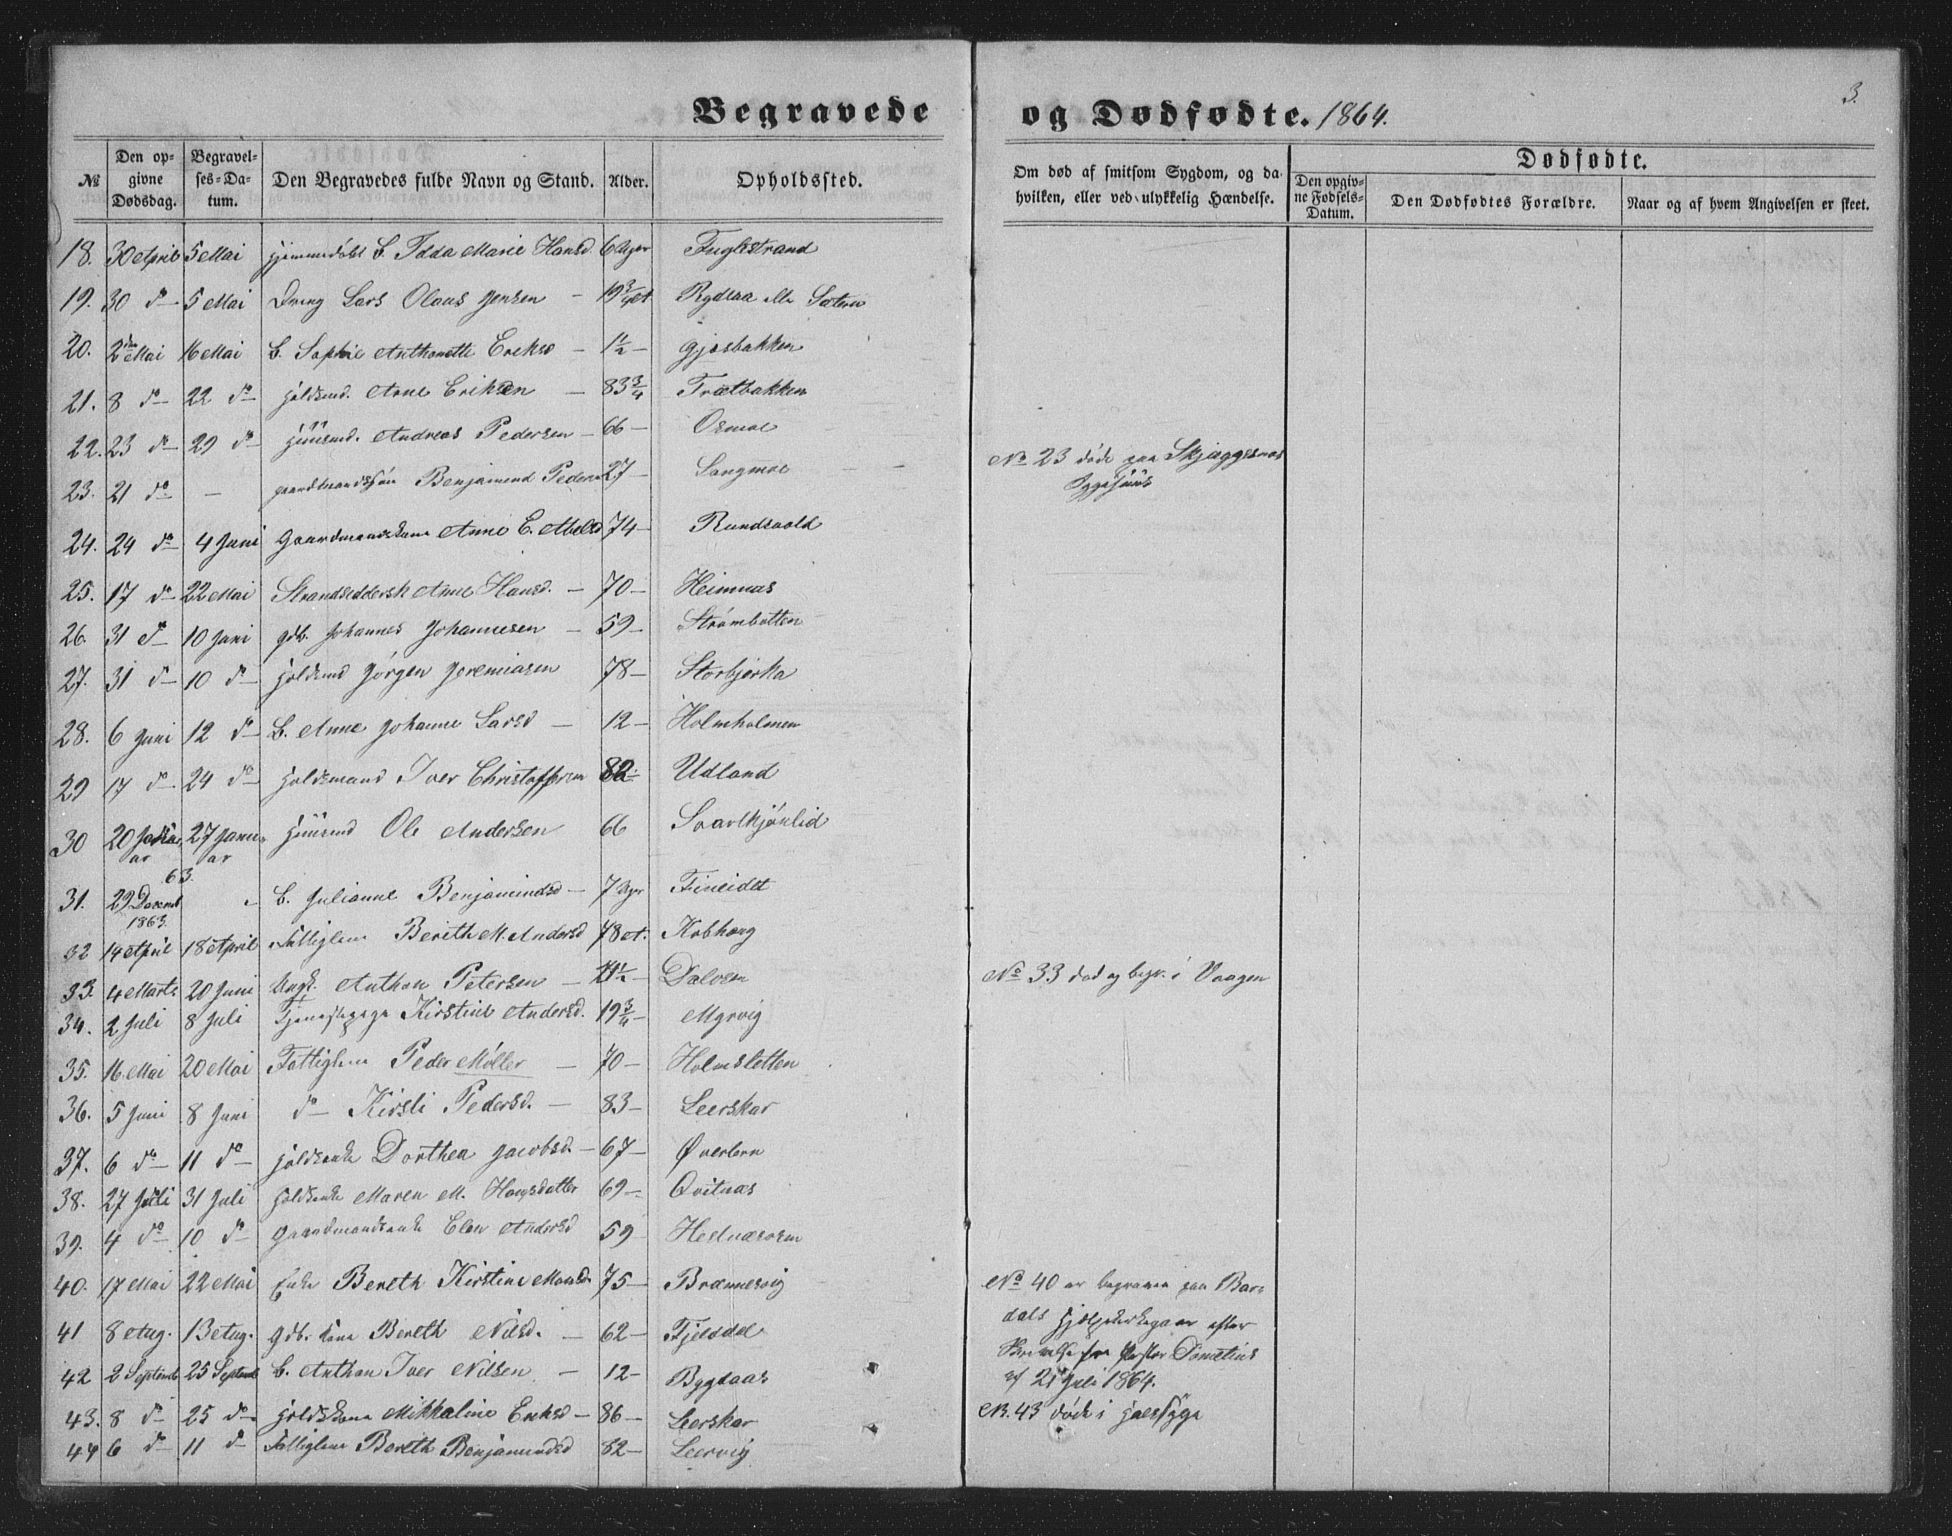 Begravede og Dødfødte. 1864.
3.
№ Den opgivne Dødsdag. Begravelses-Datum. Den Begravedes fulde Navn og Stand. Alder. Opholdssted. Om død af smitsom Sygdom, og da hvilken, eller ved ulykkelig Hændelse.
Dødfødte.
Den opgivne Fødsels-Datum. Den Dødfødtes Forældre. Naar og af hvem Angivelsen er skeet.
18. 30 April 5 Mai Idda Marie Hansd 6 Uger Fuglestrand
19. 30 do 5 Mai Dreng Lars Olaus Jensen 19 3/4 et Rydsaa elle Sætern
20. 2den Mai 16 Mai b. Sophie Anthonette Eriksd 1 1/2 Gjesbakken
21. 8 do 22 do Arne Eriksen 83 3/4 Trætbakken
22. 23 do 29 do Huusmd. Andreas Pedersen 66 Osmoe
23. 21 do Benjamend Pedersen 27 Langmoe No 23 døde paa Skjaggesnes
24. 24 do 4 Juni Gaardmandskone Anne E. Abelsd 74 Rundvold
25. 17 do 22 Mai Anne Hansd. 70 Heimnes
26. 31 do 10 Juni gdb. Johannes Johannesen 59 Strømbotten
27. 31 do 10 do Jørgen Jeremiasen 78 Storbjerka
28. 6 Juni 12 do b. Anne Johanne Larsd 12 Holmholmen
29 17 do 24 do Iver Christoffersen 82 Udland
30 20 Januar 27 Januar Huusmd Ole Andersen 66
63.
31. 29 Decemb 1863. b. Julianne Benjamindsd 7 Uger Fineidet
32 14 April 18 April Fattiglem Berith M. Andersd 78 et. Kobhoug
33. 4 Marts 20 Juni Ungk. Anthon Petersen 21 1/2 Dalosen No 33 død og begr. i Vaagen
34. 2 Juli 8 Juli Tjenestepige Kirstine Andersd. 19 3/4 Myrvig
35. 16 Mai 20 Mai Fattiglem Peder Møller 70 Holmsletten
36. 5 Juni 8 Juni do Kirsti Pedersd. 83 Leerskar
37. 6 do 11 do Dorthea Jacobsd. 67 Øverleren
38. 27 Juli 31 Juli Maren M. Hansdatter 69 Qvitnæs
39. 4 do 10 do Gaardmandsenke Elen Andersd 59
40. 17 Mai 22 Mai Enke Bereth Kirstine Monsd. 75 Brennesvig No 40 er begraven paa Bardals Hjelpekirkegaar efter
41 8 Aug. 13 Aug. Gdb. kone Bereth Nilsd. 62 Fjeldal
fra Pastor
42 2 Septemb 25 Septemb b. Anthon Iver Nilsen 12 Bygdaas
af 21 Juli 1864.
43. 8 do 25 do Mikkaline Eriksd 86 Leerskar N. 43 døde i
44 6 do 11 do Fattiglem Bereth Benjamindsd 82 Leervig